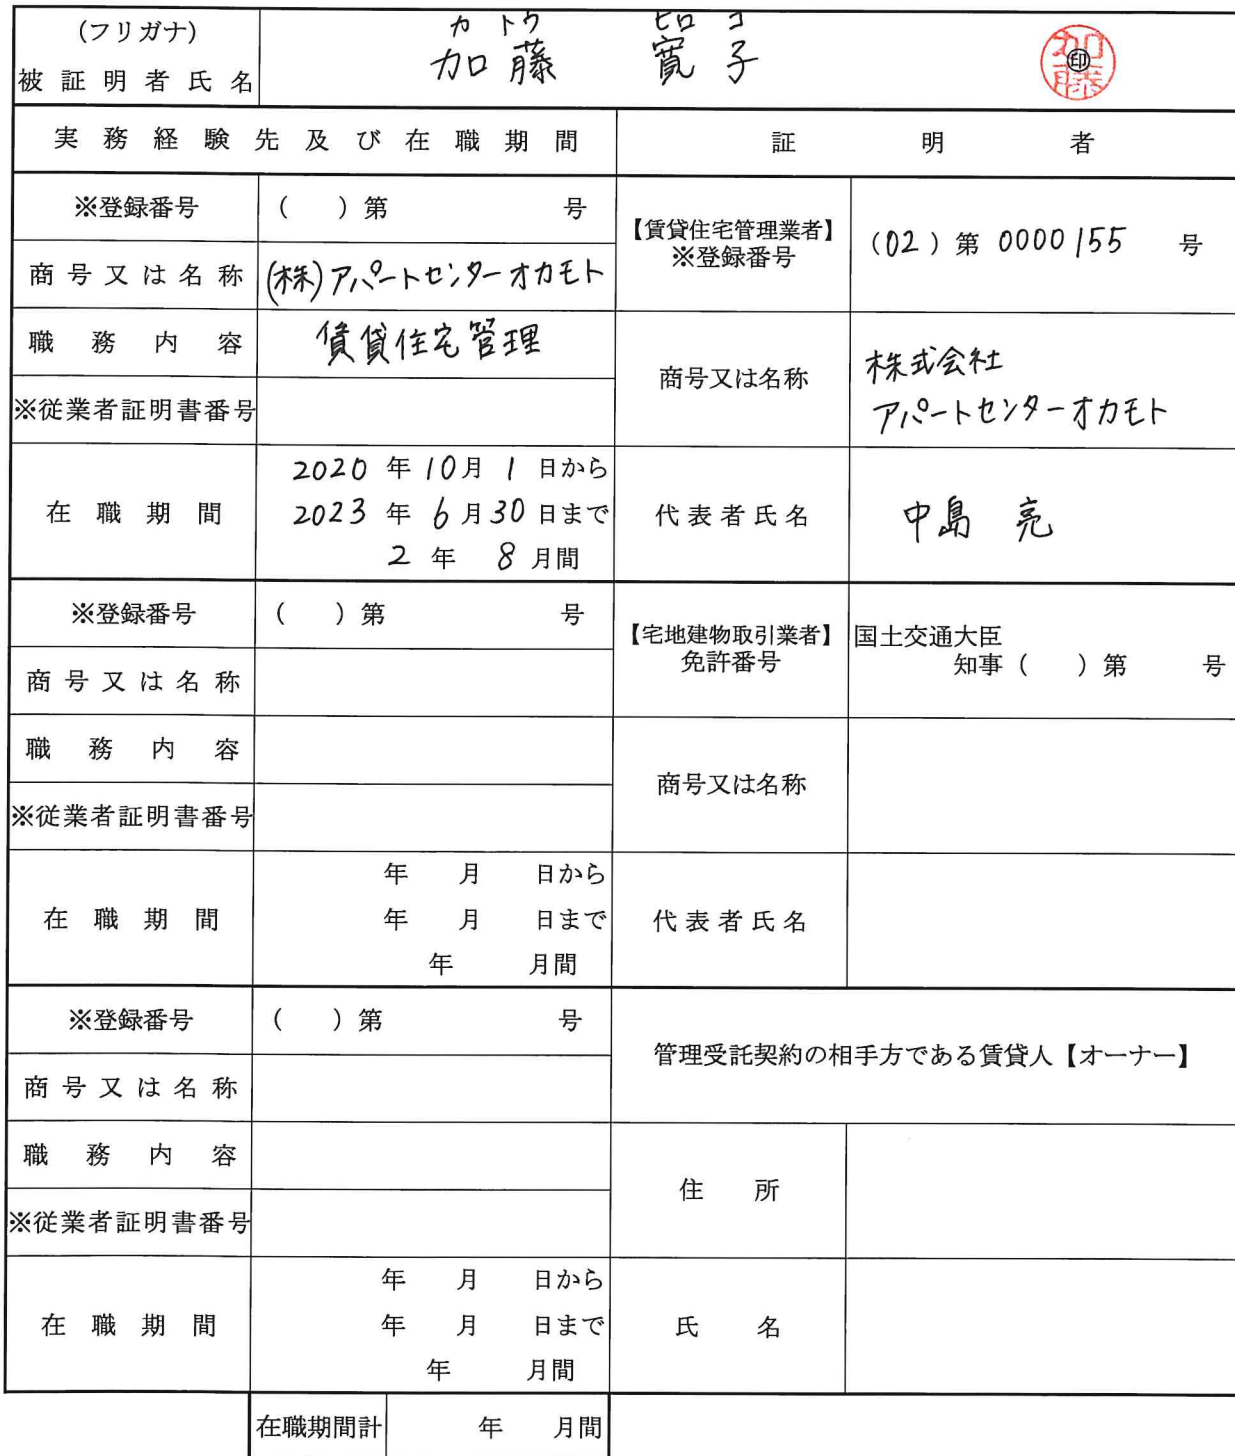 (フリガナ) カトウ ヒロコ
被証明者氏名 加藤 寛子 加藤 ㊞
実務経験先及び在職期間 証明者
※登録番号 ( )第 号 【賃貸住宅管理業者】
※登録番号 (02)第 0000155 号
商号又は名称 (株)アパートセンターオカモト
職務内容 賃貸住宅管理
商号又は名称 株式会社
アパートセンターオカモト
※従業者証明書番号
在職期間 2020年10月1日から
2023年6月30日まで
2年8月間
代表者氏名 中島 亮
※登録番号 ( )第 号 【宅地建物取引業者】
免許番号 国土交通大臣
知事( )第 号
商号又は名称
職務内容
商号又は名称
※従業者証明書番号
在職期間 年 月 日から
年 月 日まで
年 月間
代表者氏名
※登録番号 ( )第 号
管理受託契約の相手方である賃貸人【オーナー】
商号又は名称
職務内容
住所
※従業者証明書番号
在職期間 年 月 日から
年 月 日まで
年 月間
氏名
在職期間計 年 月間